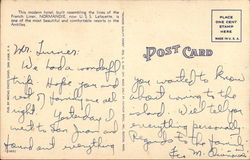 This modern hotel, built resembling the lines of the
French Liner, NORMANDIE, now U.S.S. Lafayette, is
one of the most beautiful and comfortable resorts in the
Antilles.
POST CARD
PLACE
ONE CENT
STAMP
HERE
MADE IN U.S.A.
Mr. Turner:
We had a wonderful
trip. Hope you and
family are all
right. Yesterday I
went to San Juan and
found out everything
you wanted to know
about
island. Will tell you
everything personally.
Regards to the family